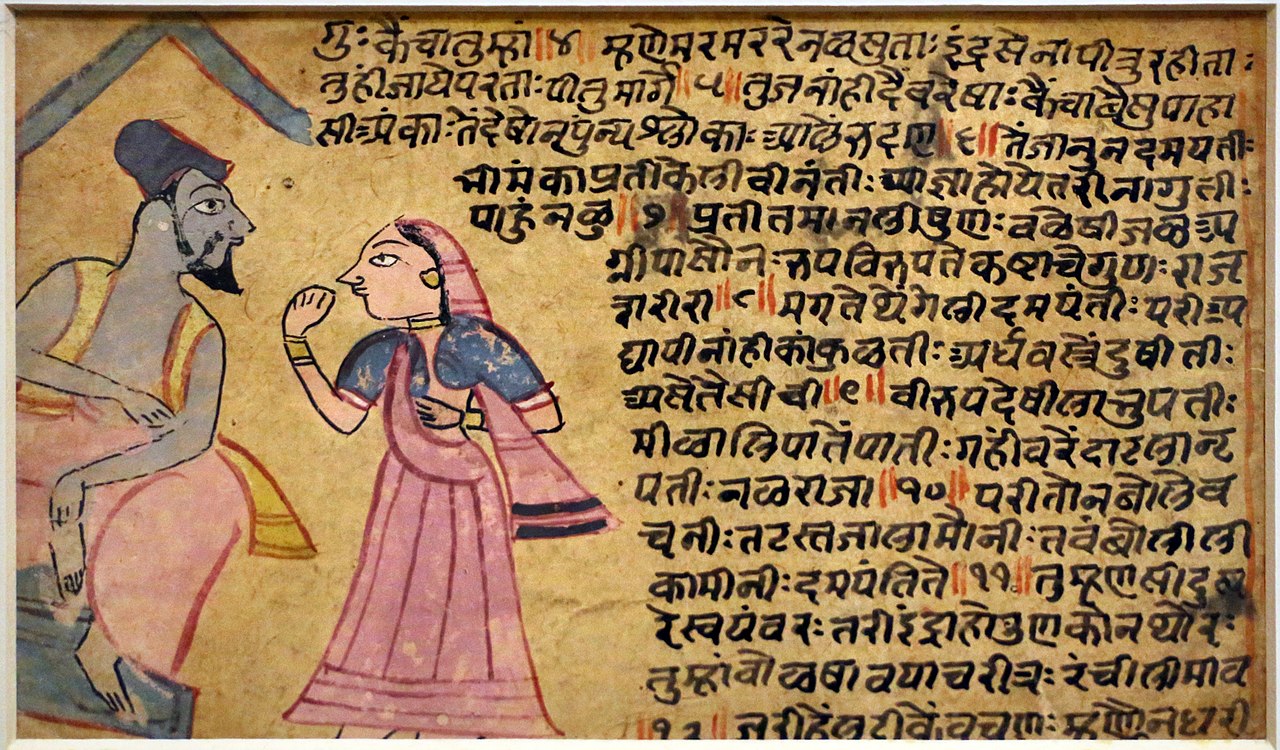 गुः कैंचा तुम्हां॥४॥ म्हणे मर मर रे नळषुताः इंद्रसेना पीत्रु रहीताः
त्रुहीं जाये परताः पीतु मार्गे॥५॥ तुज नांही दैवरेषाः कैंचा बैसु पाहा
सी अंकाः तें देषोन पुन्यश्लोकाः आलें रुदण॥६॥ तें जानुन दमयंतीः
भीमंका प्रती केली वीनंतीः आज्ञा होये तरी नागुतीः
पाहुं नळु॥७॥ प्रतीत मानली षुणः वळषी जळ अ
ग्नी पाषोनः रुप विरुप तें कष्टाचे गुणः राज
त्रारीरी॥८॥ मग तेथें गेली दमयंतीः परी अ
द्यापी नांही कां कुळतीः अर्धवस्त्रें दुषीतीः
असे तैसीची॥९॥ वीरुप देषीला नृपतीः
मीळालि पातें पातीः गहींवरें दाटला नृ
पतीः नळराजा॥१०॥ परी तो न बोले व
चनीः तटस्त जाला मौनीः तवं बोलीली
कामीनीः दमयंति ते॥११॥ तु म्हणषी दुष
रें स्वयंवरः तरी इंद्रा हो गुण कोन थोरः
तुम्हां वोळषावया चरीत्रः रंचीला भाव
॥१२॥ जरी हें लटीकें वचणः म्हणैन धरी